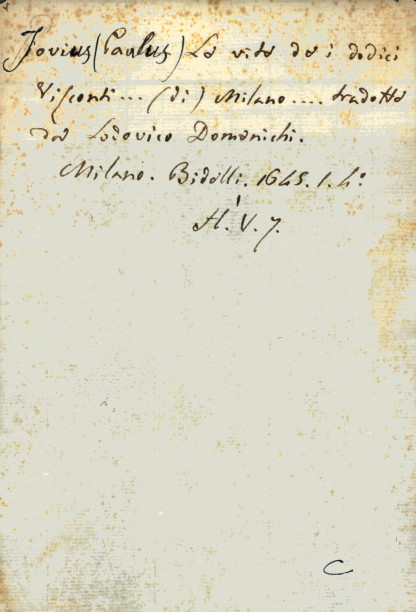 Jovius (Paulus) La vita de i dodici
Visconti ... (di) Milano .... tradotta
da Lodovico Domenichi.
Milano. Bidelli. 1645. 1. 4º
H. V. 7.
C